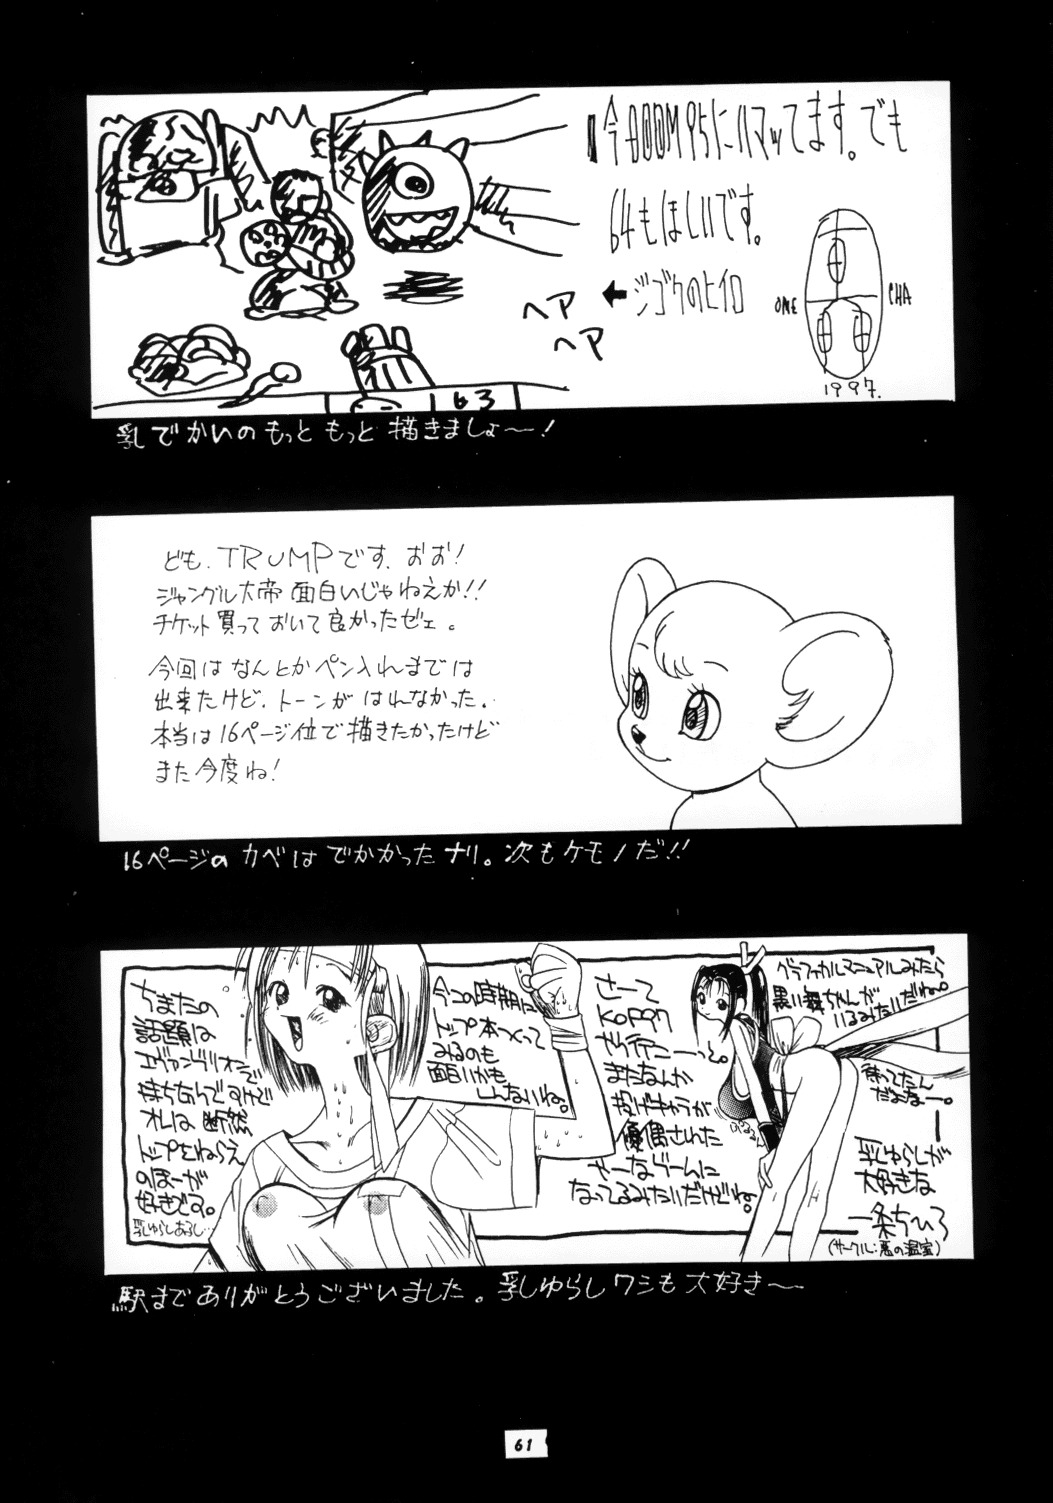 今DOOM95にハマッてます。でも
64もほしいです。
← ジゴクのヒイロ
ヘア
ヘア
ONE CHA
1997.
63
乳でかいのもっともっと描きましょ〜!
ども、TRUMPです、おお!
ジャングル大帝面白いじゃねえか!!
チケット買っておいて良かったゼェ。
今回はなんとかペン入れまでは
出来たけど、トーンがはれなかった。
本当は16ページ位で描きたかったけど
また今度ね!
16ページのカベはでかかったナリ。次もケモノだ!!
ちまたの
話題は
エヴァンゲリオンで
持ちきりですけど
オレは断然
トップをねらえ
のほーが
好きです。
今この時期に
トップ本つくって
みるのも
面白いかも
しんないね。
さーて
KOF97
だっ行こーっと。
またなんか
投げキャラが
優遇された
ゲームに
なってるみたいだけどね。
グラフィカルマニュアルみたら
黒い舞ちゃんが
いるみたいだね。
待ってたん
だよなー。
ぷるるん
乳ゆらしが
大好きな
一条ちひろ
(サークル:悪の温室)
駅までありがとうございました。乳ゆらしワシも大好き〜
61